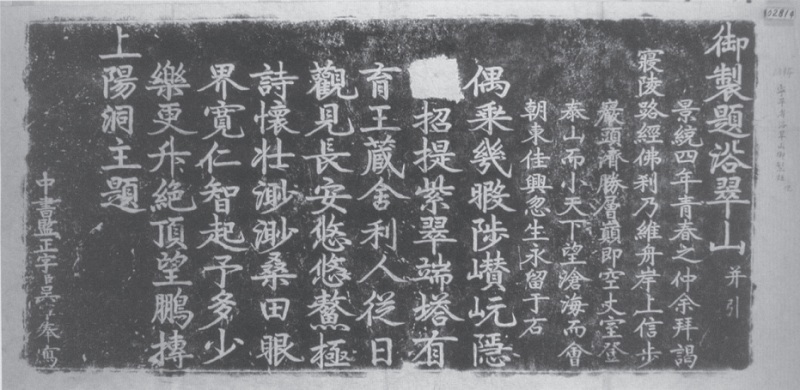 御製題浴翠山 并引
景統四年青春之仲余拜謁
寢陵路經佛利乃維舟岸上信步
巖頭濟勝層巔即空丈室登
泰山而小天下望滄海而會
朝東佳興忽生永留于石
偶乘幾暇陟巑岏隱
招提紫翠端塔有
育王蔵舍利人從日
觀見長安悠悠鰲極
詩懷壯渺渺桑田眼
界寬仁智起予多少
樂更升絕頂望鵬摶
上陽洞主題
中書監正字吳奉寫